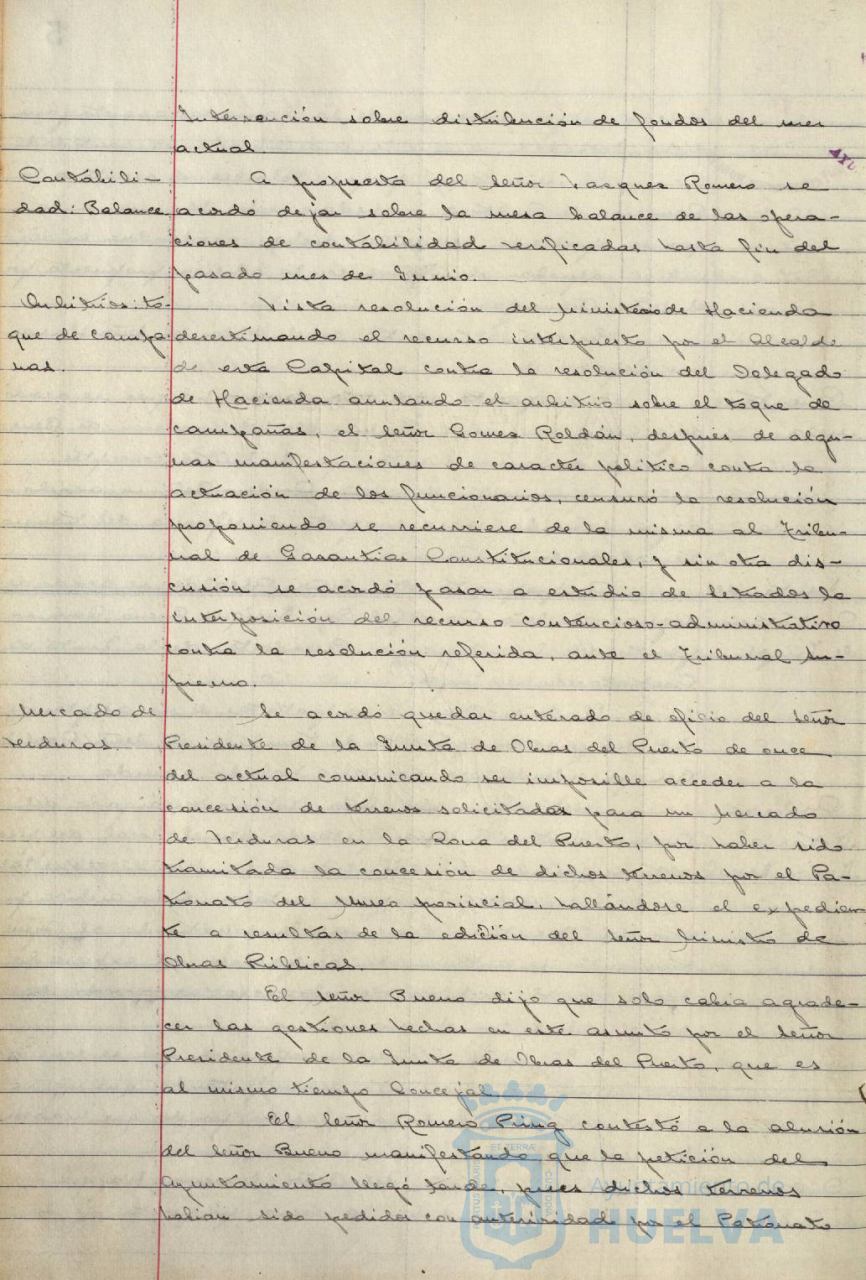 Intervención sobre distribución de fondos del mes
actual.
Contabili-
dad: Balance
A propuesta del Señor Vazquez Romero se
acordó dejar sobre la mesa balance de las opera-
ciones de contabilidad verificadas hasta fin del
pasado mes de Junio.
Arbitrios: to-
que de campa-
nas.
Vista resolución del Ministerio de Hacienda
desestimando el recurso interpuesto por el Alcalde
de esta Capital contra la resolución del Delegado
de Hacienda anulando el arbitrio sobre el toque de
campañas, el Señor Gomez Roldán, después de algu-
nas manifestaciones de caracter politico contra la
actuación de los funcionarios, censuró la resolución
proponiendo se recurriese de la misma al Tribu-
nal de Garantias Constitucionales, y sin otra dis-
cusión se acordó pasar a estudio de Letrados la
interposición del recurso contencioso-administrativo
contra la resolución referida, ante el Tribunal Su-
premo.
Mercado de
Verduras.
Se acordó quedar enterado de oficio del Señor
Presidente de la Junta de Obras del Puerto de once
del actual comunicando ser imposible acceder a la
concesión de terrenos solicitados para un mercado
de Verduras en la Zona del Puerto, por haber sido
tramitada la concesión de dichos terrenos por el Pa-
tronato del Museo provincial, hallándose el expedien-
te a resultas de la edición del Señor Ministro de
Obras Públicas.
El Señor Bueno dijo que solo cabia agrade-
cer las gestiones hechas en este asunto por el Señor
Presidente de la Junta de Obras del Puerto, que es
al mismo tiempo Concejal.
El Señor Romero contestó a la alusión
del Señor Bueno manifestando que la petición del
Ayuntamiento llegó tarde, pues dichos terrenos
habian sido pedidos con anterioridad por el Patronato
Ayuntamiento de
HUELVA